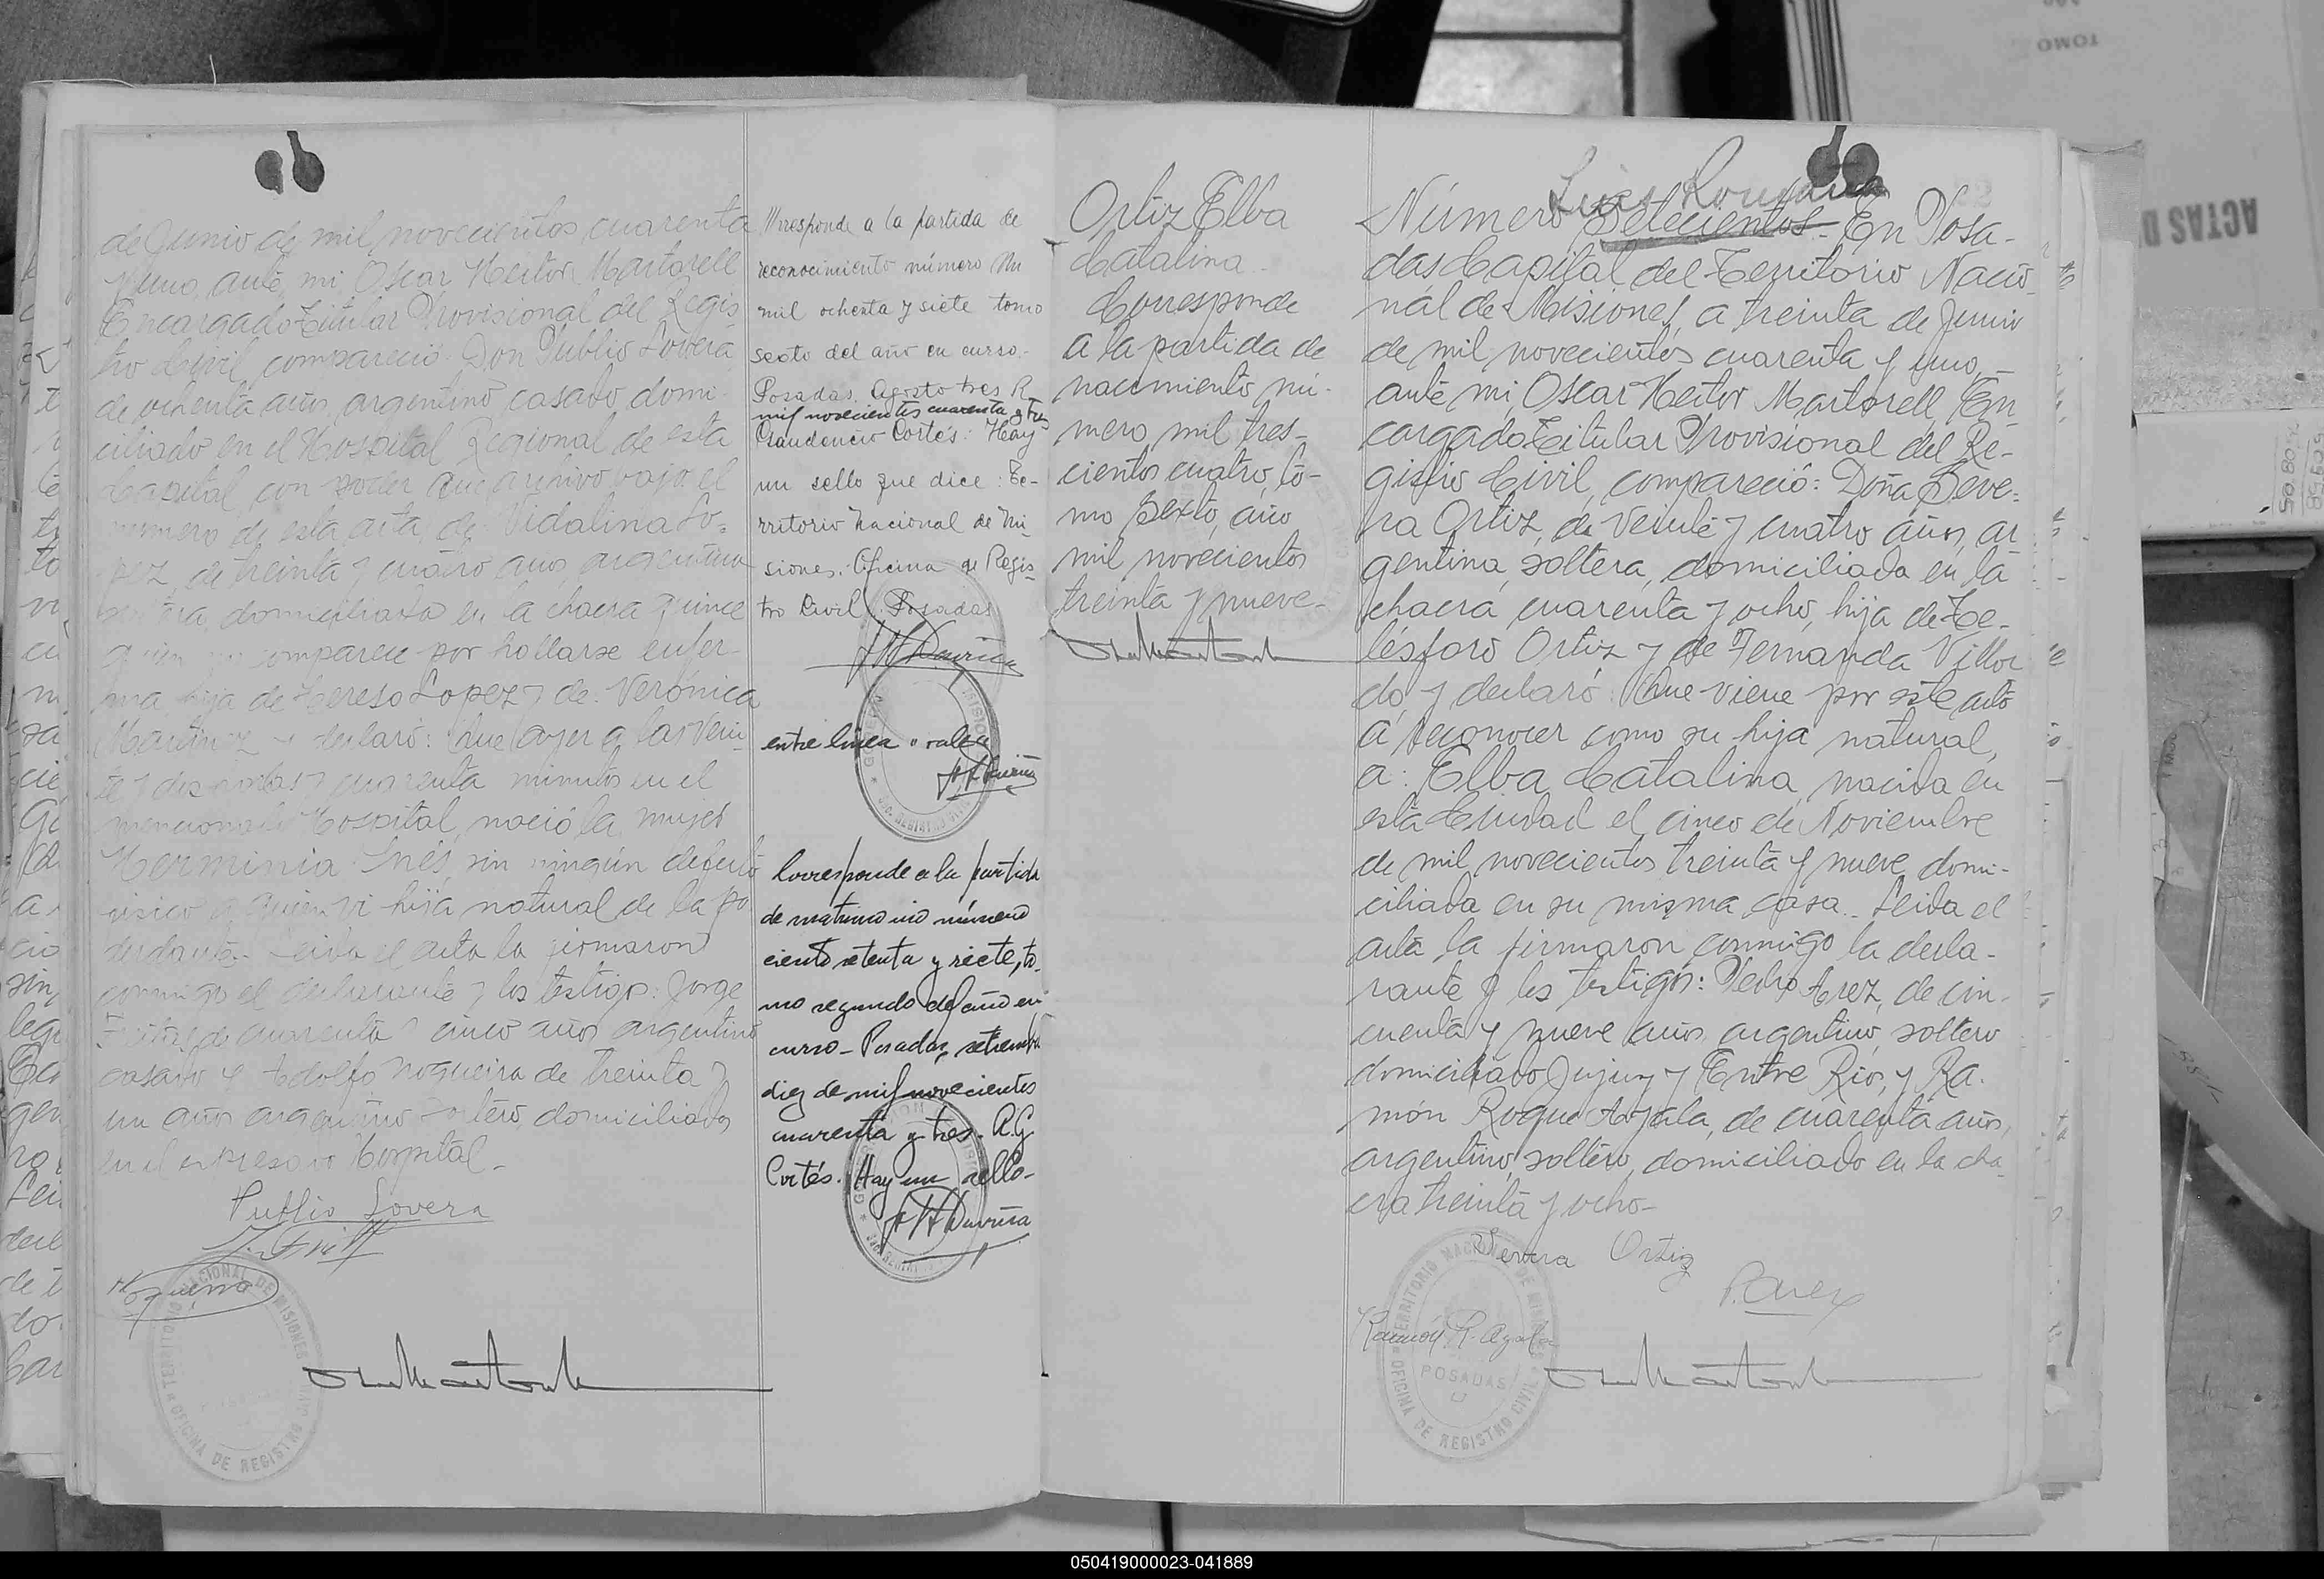 de Junio de mil novecientos cuarenta
y uno, ante mi, Oscar Hector Martorell
Encargado Titular Provisional del Regis-
tro Civil, compareció: Don Publio Lovera
de ochenta años, argentino casado domi-
ciliado en el Hospital Regional de esta
Capital, con poder que archivo bajo el
número de esta acta, de Vidalina Lo-
pez, de treinta y cuatro años, argentina
soltera, domiciliada en la chacra quince
quien no comparece por hallarse enfer-
ma, hija de Tereso Lopez y de Verónica
Martinez y declaró: Que ayer a las vein-
te y dos horas y cuarenta minutos en el
mencionado Hospital, nació la mujer
Herminia Inés, sin ningún defecto
físico a quien vi hija natural de la po
derdante. Leida el acta la firmaron
conmigo el declarante y los testigos: Jorge
de cuarenta y cinco años argentino
casado y Adolfo Nogueira de treinta y
un años argentino soltero, domiciliados
en el expresado Hospital.
Publio Lovera
Nogueira
TERRITORIO NACIONAL DE MISIONES
OFICINA DE REGISTRO CIVIL
Corresponde a la partida de
reconocimiento número
mil ochenta y siete tomo
sexto del año en curso.-
Posadas. Agosto tres R
mil novecientos cuarenta y tres
Gaudencio Cortés: Hay
un sello que dice: Te-
rritorio Nacional de Mi-
siones. Oficina de Regis-
tro Civil. Posadas
entre linea: vale
Corresponde a la partida
de matrimonio número
ciento setenta y siete, to-
mo segundo del año en
curso - Posadas, setiembre
diez de mil novecientos
cuarenta y tres. R.G.
Cortés. Hay un sello-
Ortiz Elba
Catalina
Corresponde
a la partida de
nacimiento nú-
mero mil tres-
cientos cuatro, to-
mo Sexto, año
mil novecientos
treinta y nueve.-
Número Setecientos.- En Posa-
das Capital del Territorio Nacio-
nal de Misiones, a treinta de Junio
de mil novecientos cuarenta y uno,
ante mi, Oscar Hector Martorell, En-
cargado Titular Provisional del Re-
gistro Civil, compareció: Doña Seve-
ra Ortiz, de veinte y cuatro años, ar
gentina, soltera, domiciliada en la
chacra cuarenta y ocho, hija de Te-
lésforo Ortiz y de Fernanda Villor
do, y declaró: Que viene por este acto
a reconocer como su hija natural,
a: Elba Catalina, nacida en
esta Ciudad el cinco de Noviembre
de mil novecientos treinta y nueve, domi-
ciliada en su misma casa.- Leida el
acta la firmaron conmigo la decla-
rante y los testigos: Pedro Arez, de cin-
cuenta y nueve años, argentino, soltero
domiciliado Jujuy y Entre Rios, y Ra-
món Roque Ayala, de cuarenta años,
argentino, soltero, domiciliado en la cha-
cra treinta y ocho-
Severa Ortiz
P. Arez
Ramón R. Ayala
TERRITORIO NACIONAL DE MISIONES
POSADAS
OFICINA DE REGISTRO CIVIL
TOMO
050419000023-041889